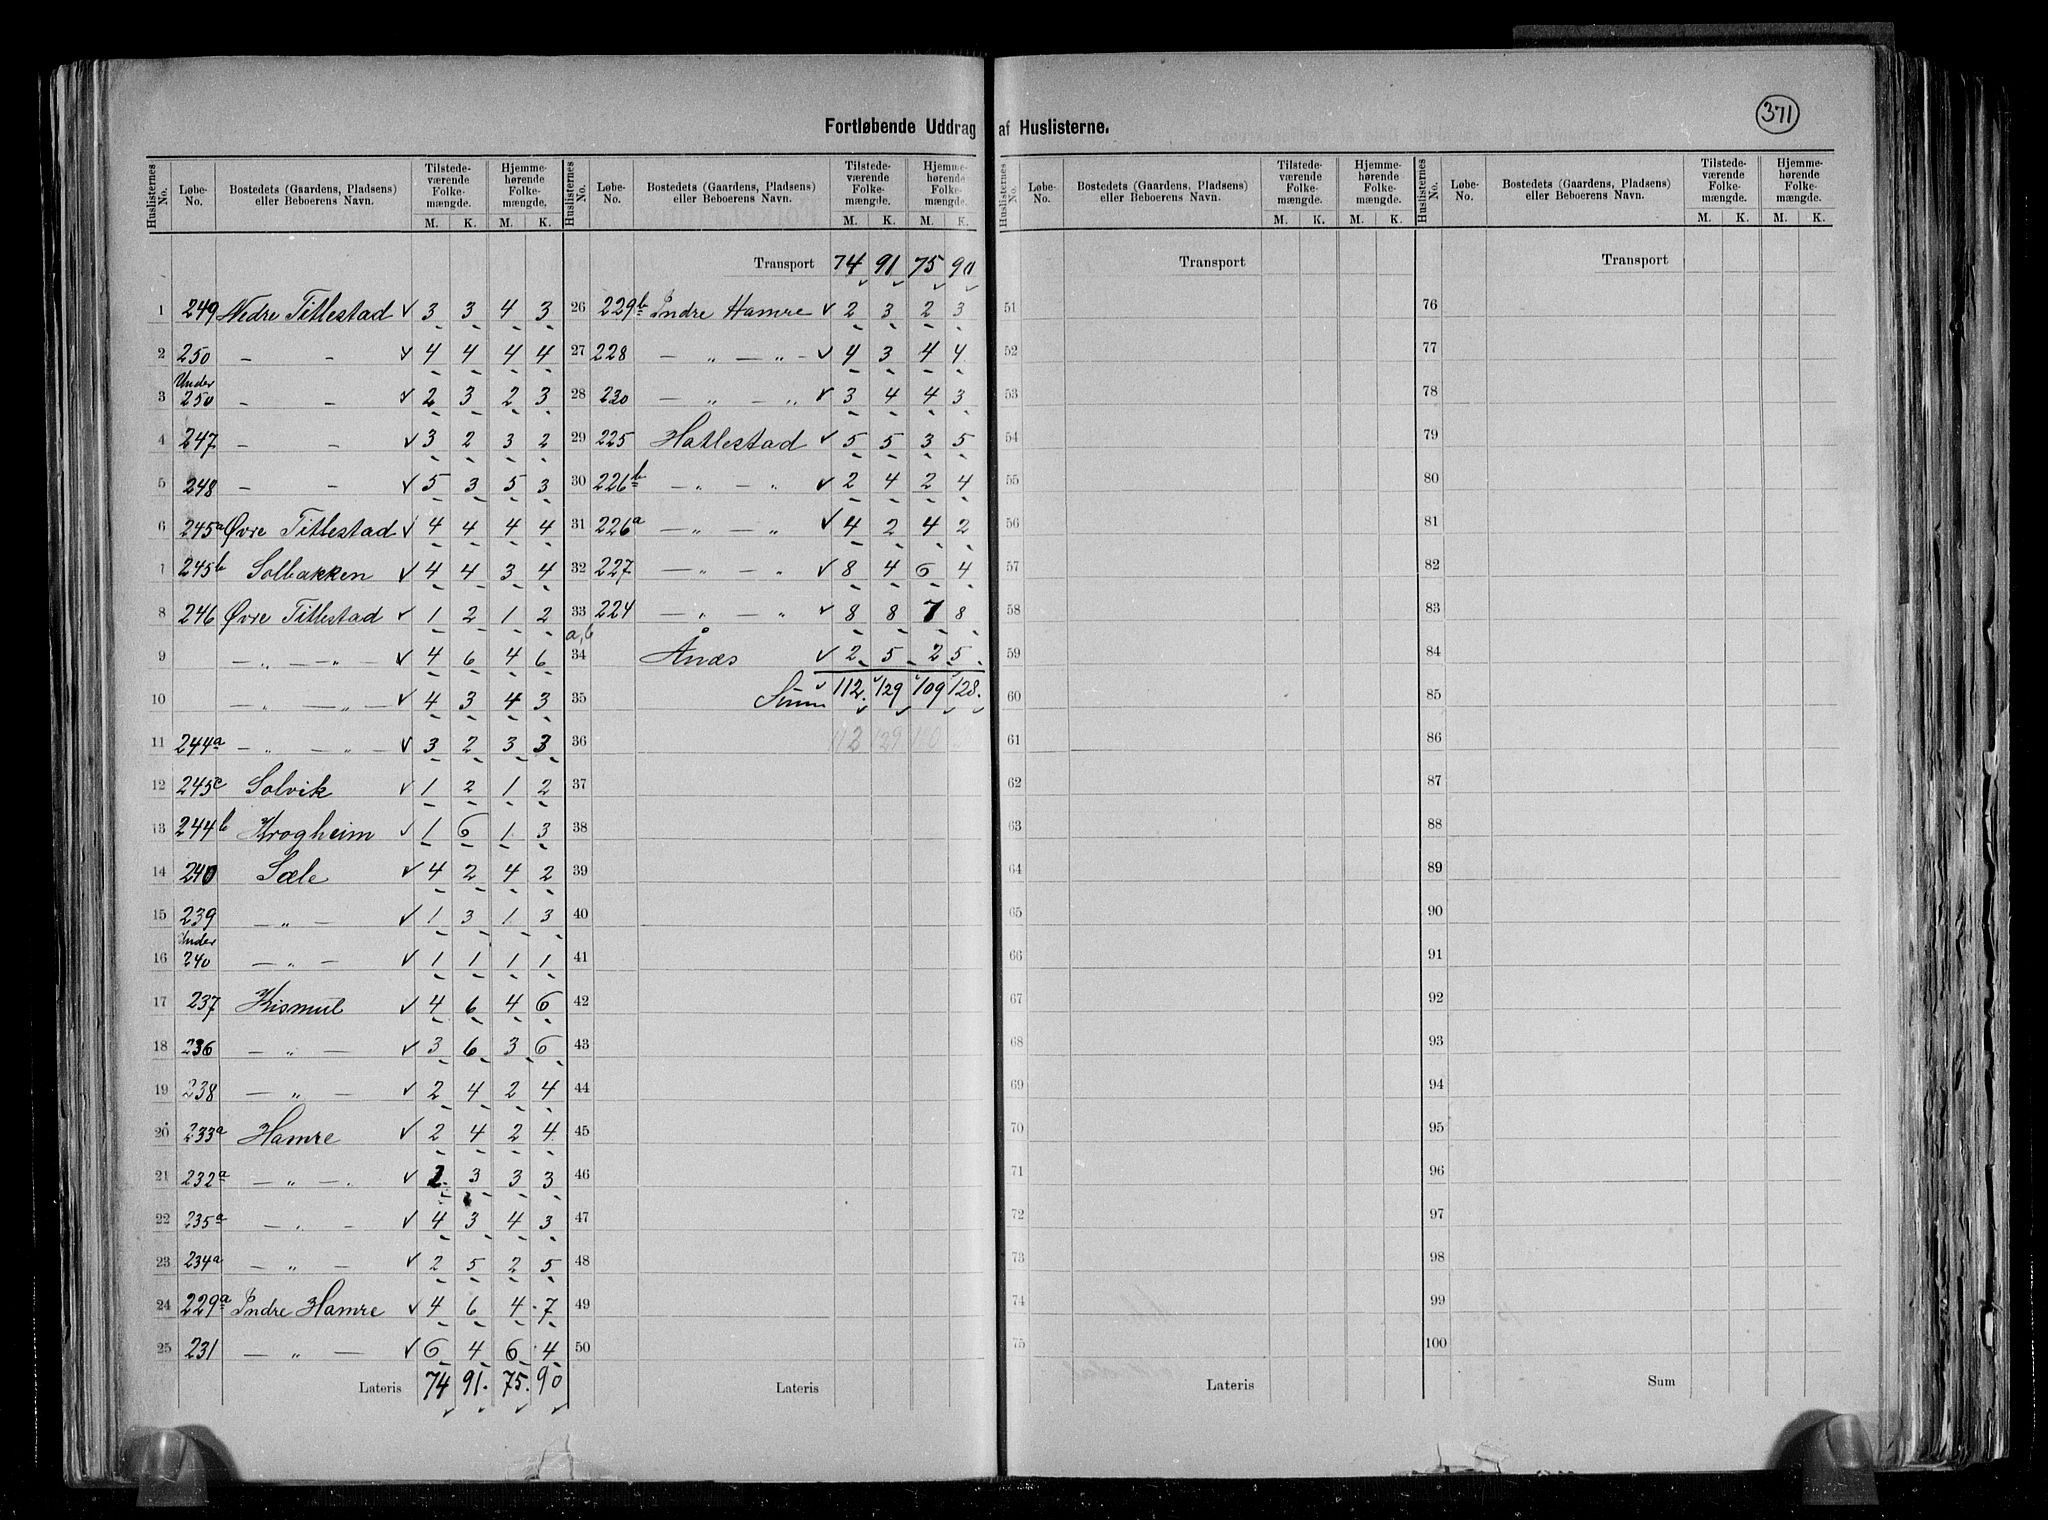 371
Fortløbende Uddrag af Huslisterne.
Huslisternes No. | Løbe-No. | Bostedets (Gaardens, Pladsens) eller Beboerens Navn. | Tilstedeværende Folkemængde. M. K. | Hjemmehørende Folkemængde. M. K.
1 249 Nedre Tittestad ✓ 3 3 4 3
2 250 — — ✓ 4 4 4 4
3 Under 250 — — ✓ 2 3 2 3
4 247 — — ✓ 3 2 3 2
5 248 — — ✓ 5 3 5 3
6 245a Øvre Tittestad ✓ 4 4 4 4
7 245b Solbakken ✓ 4 4 3 4
8 246 Øvre Tittestad ✓ 1 2 1 2
9 — „ — „ — ✓ 4 6 4 6
10 — „ — „ — ✓ 4 3 4 3
11 244a — „ — „ — ✓ 3 2 3 3
12 245c Solvik ✓ 1 2 1 2
13 244b Krogheim ✓ 1 6 1 3
14 240 Sæle ✓ 4 2 4 2
15 239 — „ — ✓ 1 3 1 3
16 Under 240 — „ — ✓ 1 1 1 1
17 237 Kismul ✓ 4 6 4 6
18 236 — „ — ✓ 3 6 3 6
19 238 — „ — ✓ 2 4 2 4
20 233a Hamre ✓ 2 4 2 4
21 232a — „ — ✓ 2 3 3 3
22 235a — „ — ✓ 4 3 4 3
23 234a — „ — ✓ 2 5 2 5
24 229a Indre Hamre ✓ 4 6 4 7
25 231 — „ — ✓ 6 4 6 4
Lateris 74 91. 75. 90
Huslisternes No. | Løbe-No. | Bostedets (Gaardens, Pladsens) eller Beboerens Navn. | Tilstedeværende Folkemængde. M. K. | Hjemmehørende Folkemængde. M. K.
Transport 74 91 75 90
26 229b Indre Hamre ✓ 2 3 2 3
27 228 — „ — „ — ✓ 4 3 4 4
28 230 — „ — „ ✓ 3 4 4 3
29 225 Hatlestad ✓ 5 5 3 5
30 226b — „ — „ ✓ 2 4 2 4
31 226a — „ — „ ✓ 4 2 4 2
32 227 — „ — „ ✓ 8 4 6 4
33 a,b 224 — „ — „ ✓ 8 8 7 8
34 Ånæs ✓ 2 5 2 5
35 Summ 112 129 109 128
36 112 129
37
38
39
40
41
42
43
44
45
46
47
48
49
50
Lateris
Huslisternes No. | Løbe-No. | Bostedets (Gaardens, Pladsens) eller Beboerens Navn. | Tilstedeværende Folkemængde. M. K. | Hjemmehørende Folkemængde. M. K.
Transport
51
52
53
54
55
56
57
58
59
60
61
62
63
64
65
66
67
68
69
70
71
72
73
74
75
Lateris
Huslisternes No. | Løbe-No. | Bostedets (Gaardens, Pladsens) eller Beboerens Navn. | Tilstedeværende Folkemængde. M. K. | Hjemmehørende Folkemængde. M. K.
Transport
76
77
78
79
80
81
82
83
84
85
86
87
88
89
90
91
92
93
94
95
96
97
98
99
100
Sum